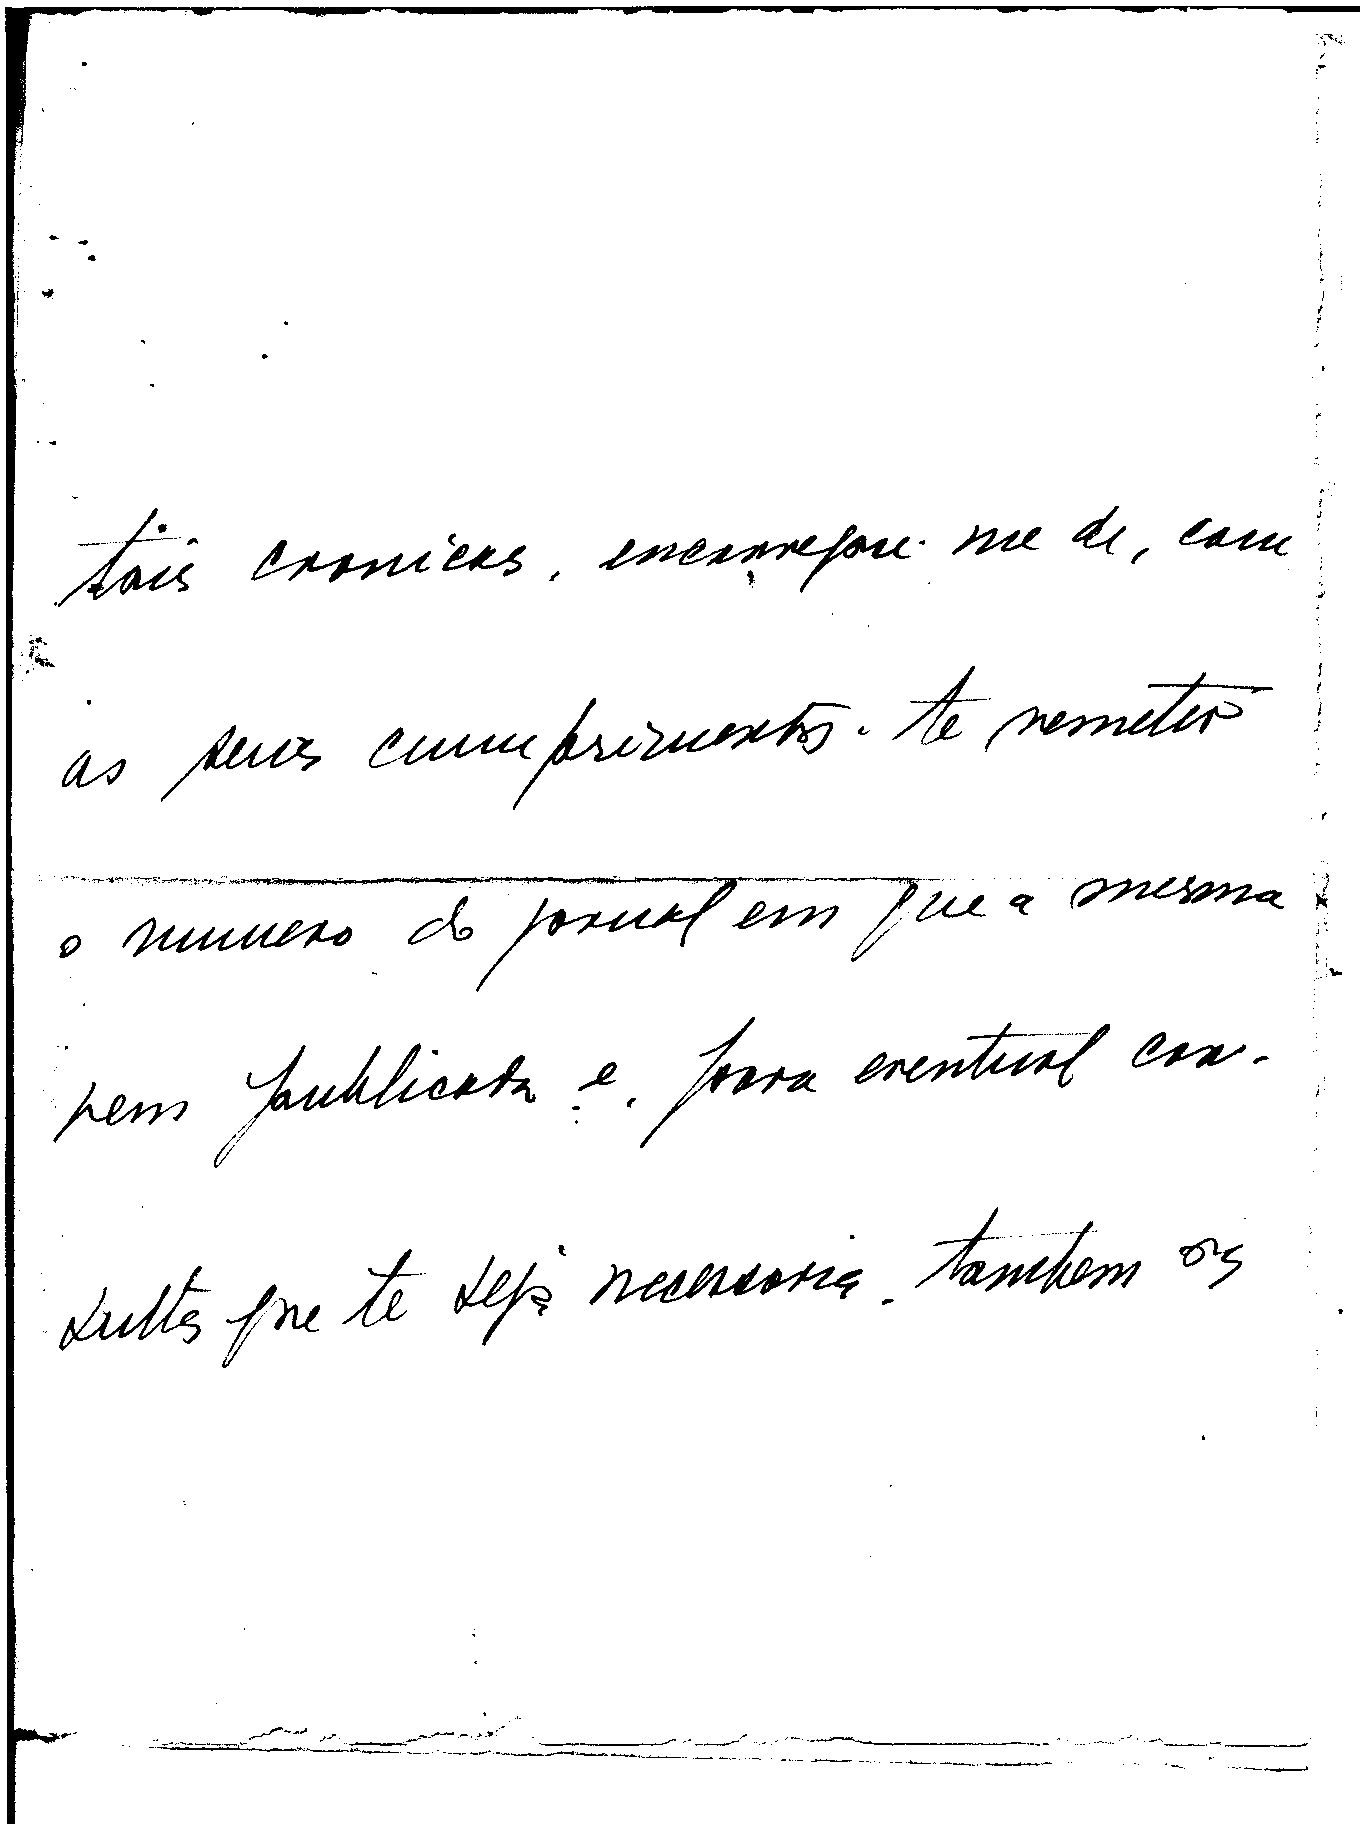 tais cronicas, encarregou-me de, com
os seus cumprimentos, te remeter
o numero do jornal em que a mesma
vem publicada e, para eventual con-
sulta que te seja necessaria, tambem os